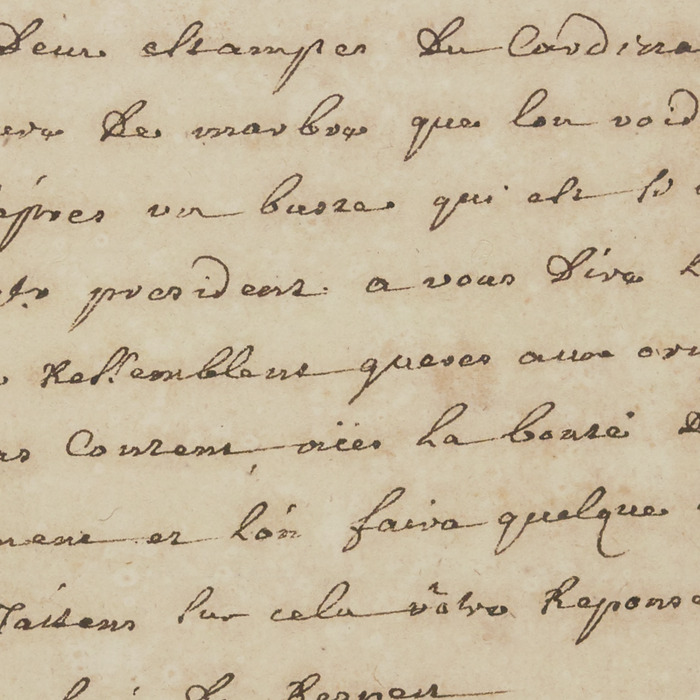 Deux estampes du Cardina
de marbre que lon void
apres un buste qui est
president a vous dire
Ressemblent queres aux ori
Content la bonté
et lón faira quelque
Jattens sur cela votre Reponse
de